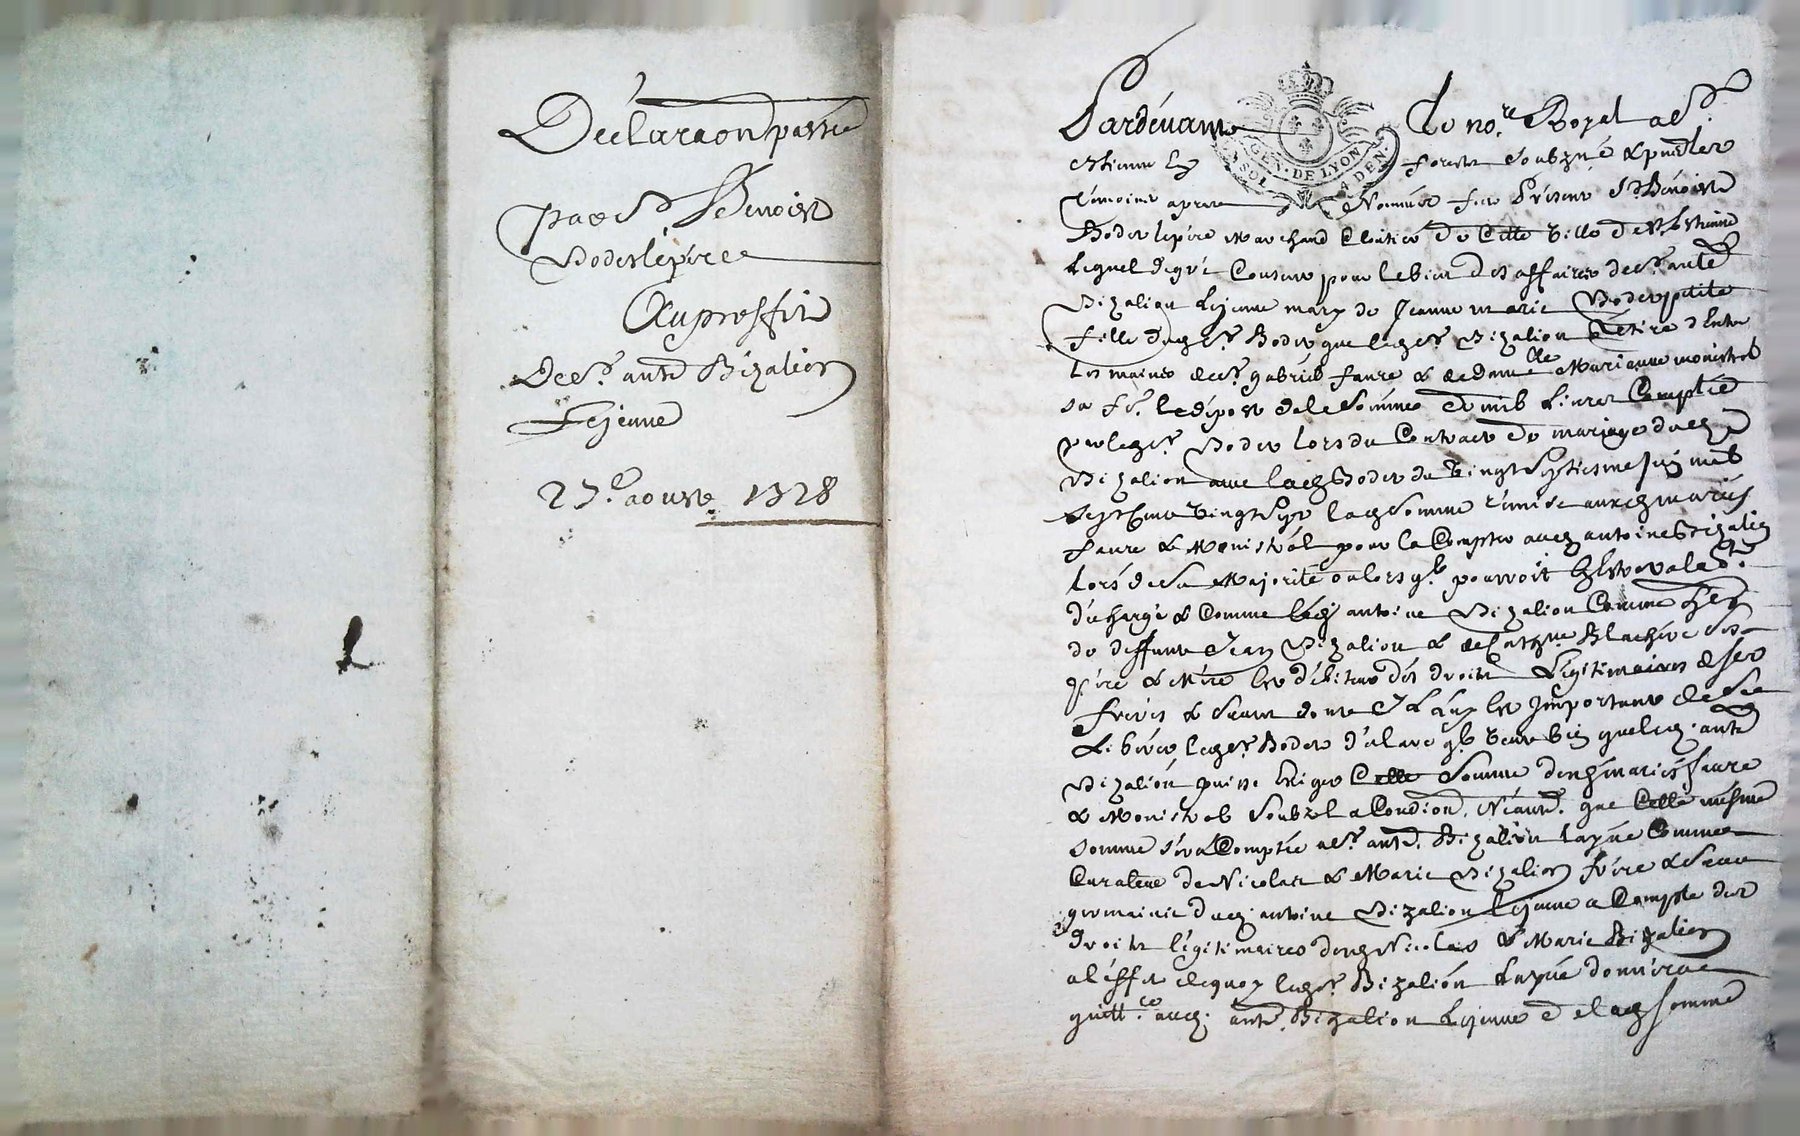 Déclaraôn passée
par Sr. Benoist
Boderlepère
Au proffit
de Sr. antd Bizalion
Lejeune
27.e aoust 1728
Pardevant le nore. Royal a St.
Estienne En forestz soubzné & pnt les
témoins apres Nommés fut présent Sr. Benoist
Boder lepère Marchand Cloutier de Cette Ville de St. Estienne
Lequel de gré Consent pour le bien des affaires de Sr. antd
Bizalion Lejeune mary de Jeanne marie Boder petite
fille dud Sr. Boder que led Sr. Bizalion Retire d'Entre
les mains de Sr. gabriel faure & de dame Marianne monistrol
sa fe. le dépost de la Somme de mil Livres Comptée
par led Sr. Boder lors du Contract de mariage dud
Bizalion avec lad Boder du Vingt Septiesme Juin mil
Sept Cent Vingt Sept lad Somme remise auxd mariés
faure & Monistrol pour la Compter aud antoine Bizalion
lors de Sa Majorité ou lors ql. pourroit
décharge & Comme led antoine Bizalion Comme
de deffunt Jean Bizalion & de Blachère Ses
père & Mère Est débiteur des droits Légitimaires de Ses
frères & Seur dont Il Luy Est Important de Se
Libérer led Sr. Boder déclare ql. Veut bien que led. antd
Bizalion puisse Exiger Cette Somme desd mariés faure
& Monistrol Soubz la Condion. Néantm. que Cette mesme
Somme Sera Comptée a Sr. antd. Bizalion Layné Comme
Curateur de Nicolas & Marie Bizalion frère & Seur
germains dud. antoine Bizalion Lejeune a Compte des
droits légitimaires desd Nicolas & Marie Bizalion
a l'effet de quoy led Sr. Bizalion Layné donnera
quitt.ce aud. antd. Bizalion Lejeune de lad Somme
GEN. DE LYON